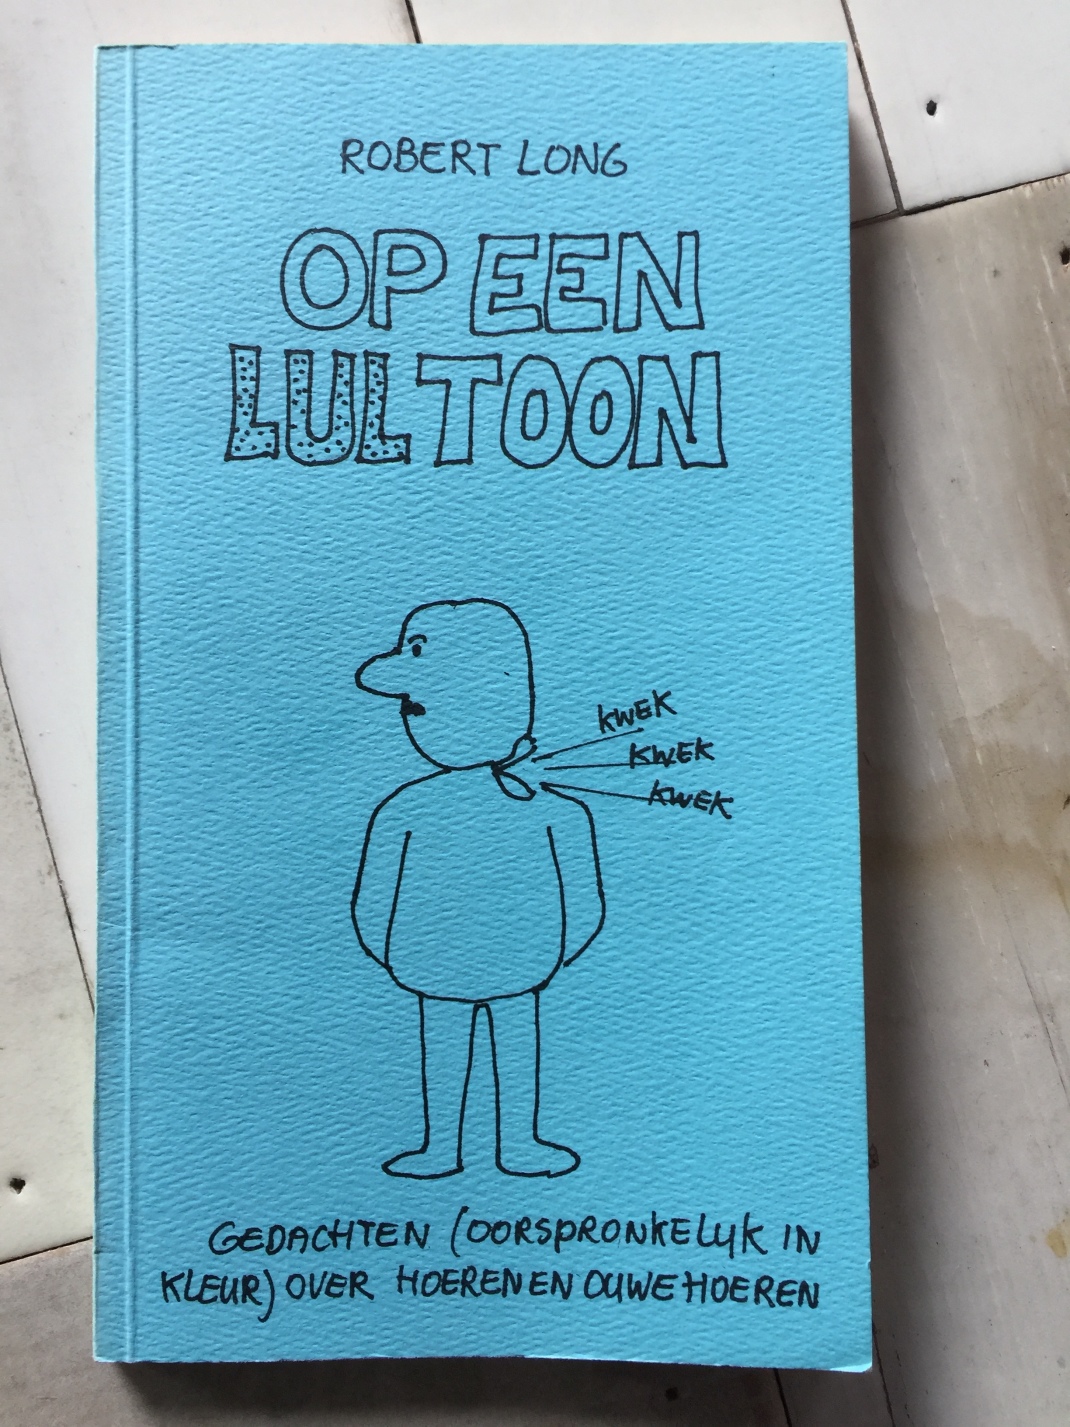 ROBERT LONG
OP EEN
LUL TOON
KWEK
KWEK
KWEK
GEDACHTEN (OORSPRONKELIJK IN
KLEUR) OVER HOEREN EN OUWEHOEREN